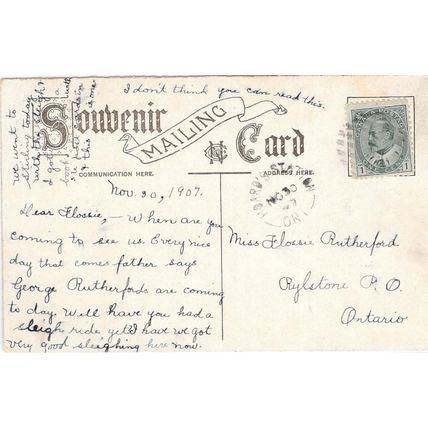 I don't think you can read this.
we went to
Stirling today
with the sleigh &
I got a
book
& this is one.
Souvenir
MAILING
Card
COMMUNICATION HERE.
ADDRESS HERE.
Nov. 30, 1907.
Dear Flossie, – When are you
coming to see us. Every nice
day that comes father says
George Rutherfords are coming
to day. Well have you had a
sleigh ride yet? I have we got
very good sleighing here now.
Miss Flossie Rutherford
Rylstone P. O.
Ontario
NO 30
07
ONT
1 1